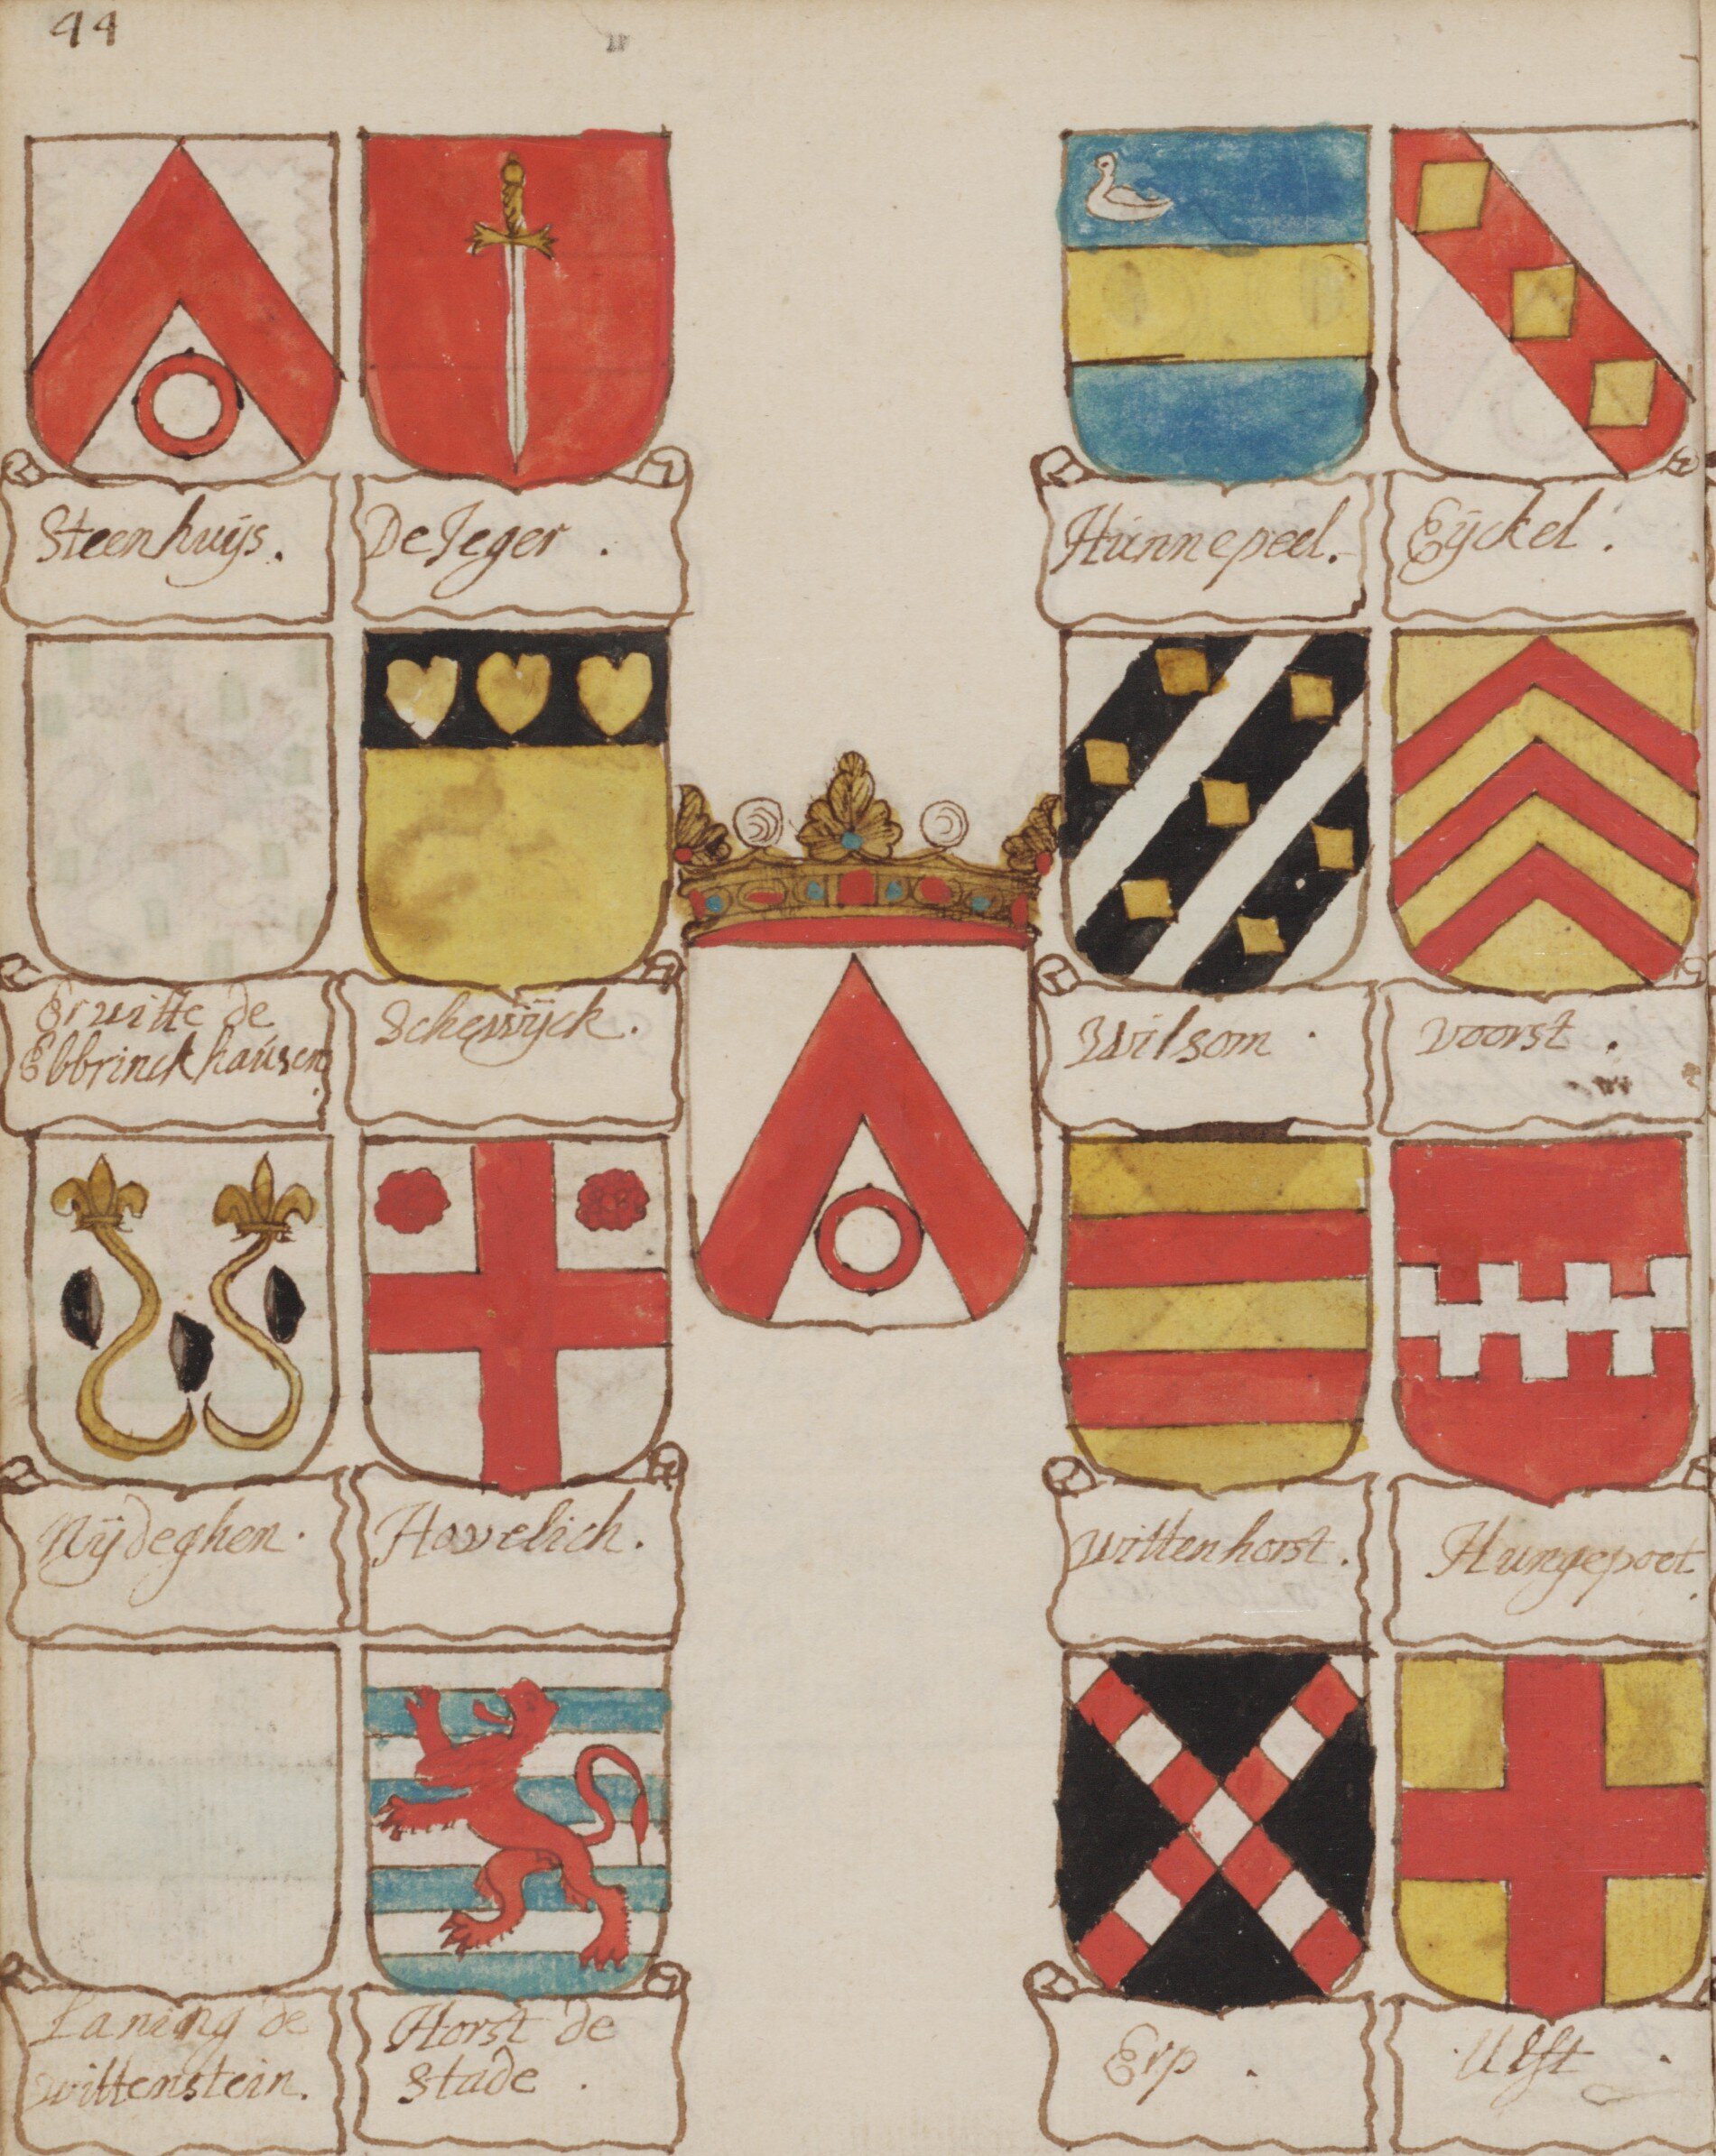 44
Steenhuÿs.
De Jeger.
Húnnepeel.
Eÿckel.
Erwitte de
Ebbrinckhaúsen
Schewÿck.
Wilsom.
voorst.
Nÿdeghen.
Hovelich.
Wittenhorst.
Hungepoet.
Laning de
wittenstein.
Horst de
Stade.
Erp.
Ulft.